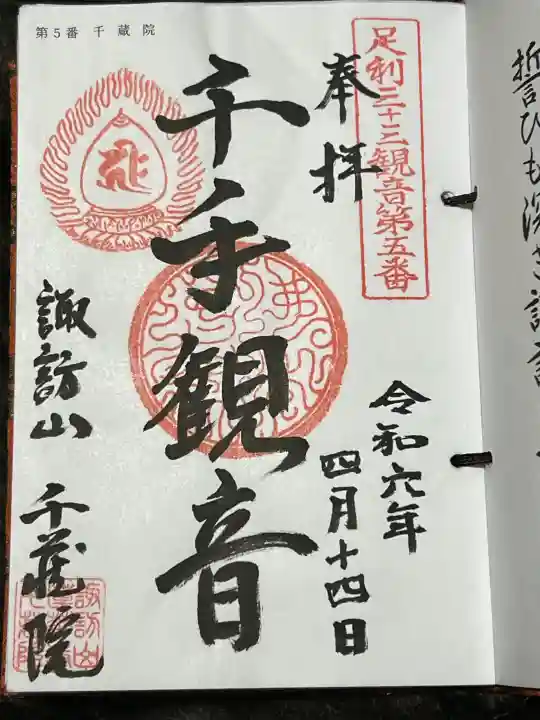 第5番 千蔵院
足利三十三観音第五番
奉拝
千手観音
令和六年
四月十四日
諏訪山 千蔵院
誓ひも深き